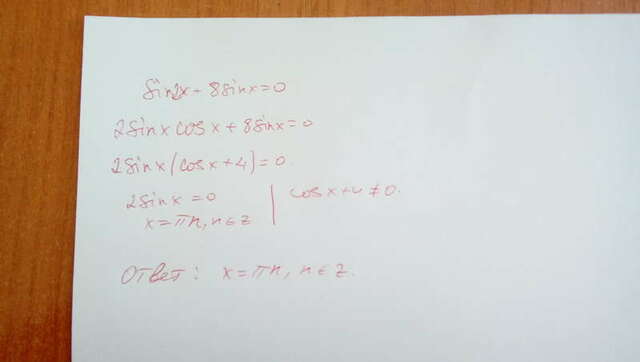 sin2x + 8sinx=0
2sinx cosx + 8sinx=0
2sinx(cosx+4)=0
2sinx=0 | cosx+4≠0.
x=πn, n∈z
Ответ: x=πn, n∈z.